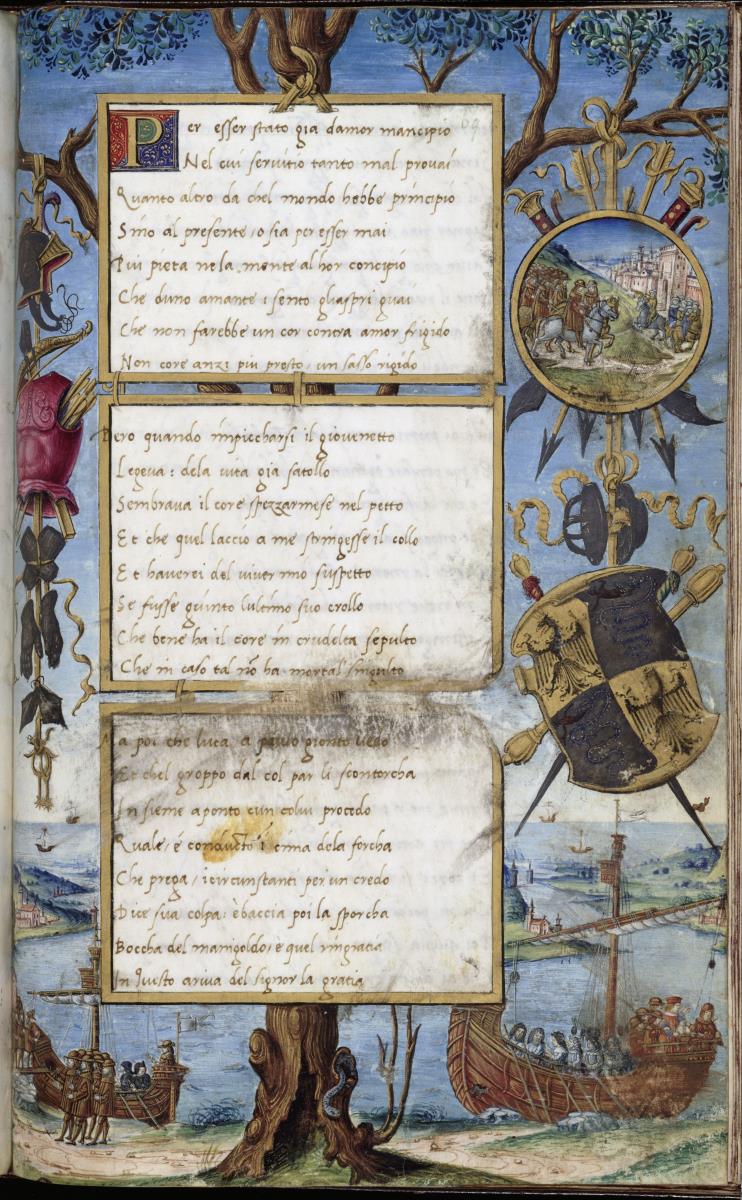 Per esser stato gia damor mancipio 64
Nel cui servitio tanto mal provai
Quanto altro da chel mondo hebbe principio
Sino al presente, o sia per esser mai
Piu pieta nela mente alhor concipio
Che duno amante i sento gliaspri guai
Che non farebbe un cor contra amor frigido
Non core anzi piu presto un sasso rigido
Pero quando impiccharsi il giovenetto
Legeva: dela vita gia satollo
Sembrava il core spezzarmese nel petto
Et che quel laccio a me stringesse il collo
Et haverei del viver mio suspetto
Se fusse giunto lultimo suo crollo
Che bene ha il core in crudelta sepulto
Che in caso tal nō ha mortal singulto
Ma poi che luca a passo gionto vedo
Et chel groppo dal col par li scontorcha
Insieme aponto cun colui procedo
Quale, é conducto ī cima dela forcha
Che prega, i circunstanti per un credo
Dice sua colpa: è baccia poi la sporcha
Boccha del manigoldo, è quel ringratia
In questo ariva del signor la gratia